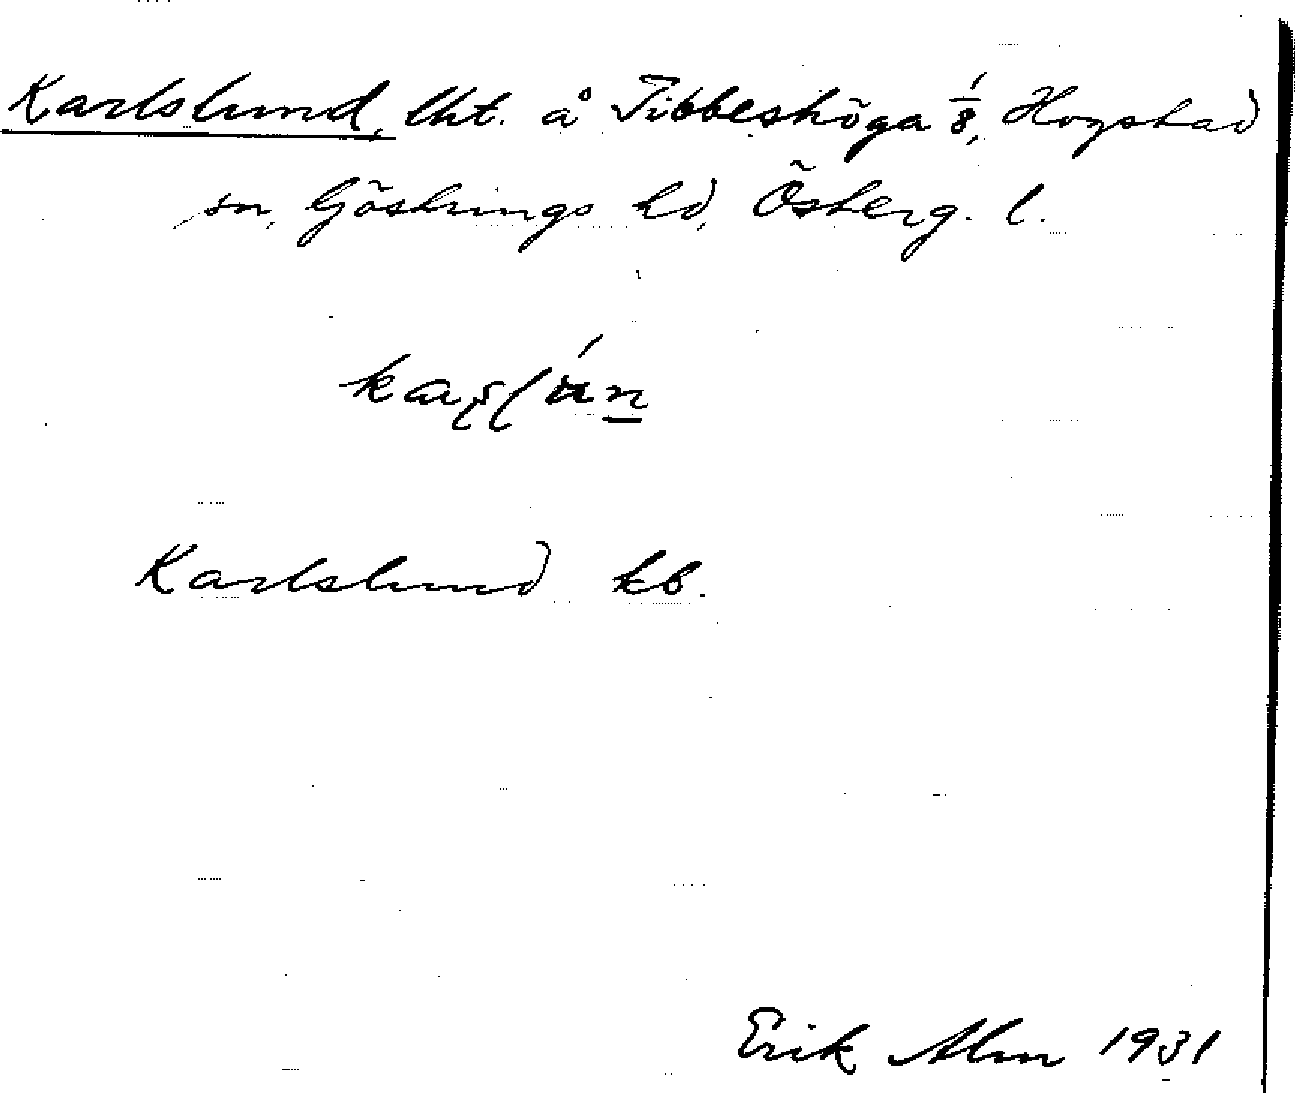 Karlslund, lht. å Tibbeshöga 1/8, Hogstad
sn, Göstrings hd, Österg. l.
Karlslund kb.
Erik Alm 1931